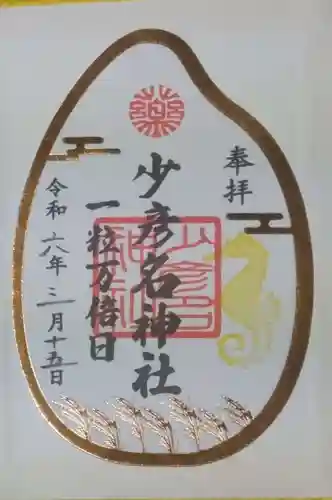 奉拝
少彦名神社
一粒万倍日
令和六年三月十五日